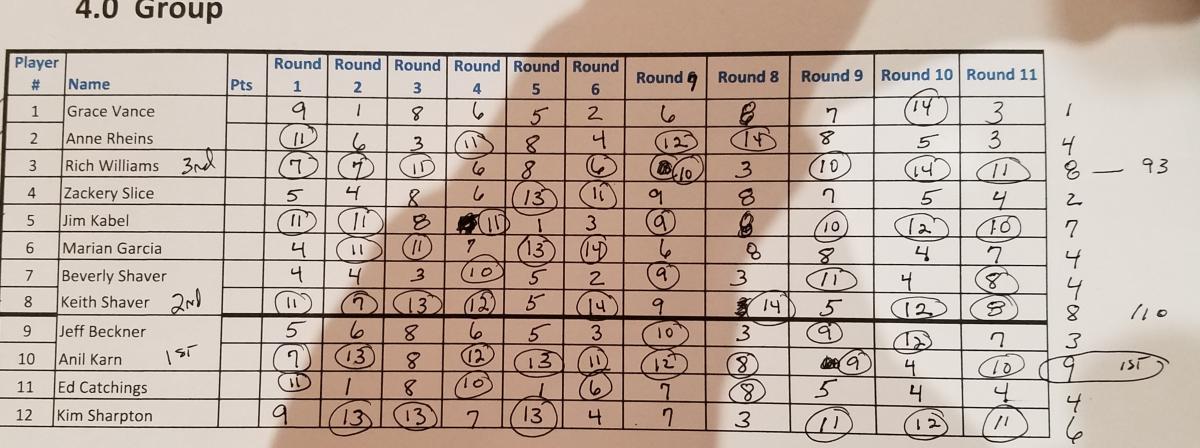 4.0 Group
Player # Name Pts Round 1 Round 2 Round 3 Round 4 Round 5 Round 6 Round 9 Round 8 Round 9 Round 10 Round 11
1 Grace Vance 9 1 8 6 5 2 6 8 7 14 3 1
2 Anne Rheins 11 6 3 11 8 4 12 14 8 5 3 4
3 Rich Williams 3rd 7 7 11 6 8 6 10 3 10 14 11 8 — 93
4 Zackery Slice 5 4 8 6 13 11 9 8 7 5 4 2
5 Jim Kabel 11 11 8 11 1 3 9 8 10 12 10 7
6 Marian Garcia 4 11 11 7 13 14 6 8 8 4 7 4
7 Beverly Shaver 4 4 3 10 5 2 9 3 11 4 8 4
8 Keith Shaver 2nd 11 9 13 12 5 14 9 14 5 12 8 8 110
9 Jeff Beckner 5 6 8 6 5 3 10 3 9 12 7 3
10 Anil Karn 1st 7 13 8 12 13 11 12 8 9 4 10 9 1st
11 Ed Catchings 11 1 8 10 1 6 7 8 5 4 4 4
12 Kim Sharpton 9 13 13 7 13 4 7 3 11 12 11 6